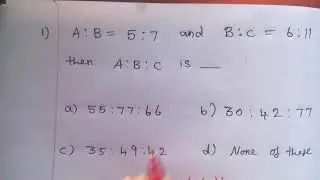 1) A:B = 5:7 and B:C = 6:11
then A:B:C is __
a) 55:77:66 b) 30:42:77
c) 35:49:42 d) None of these